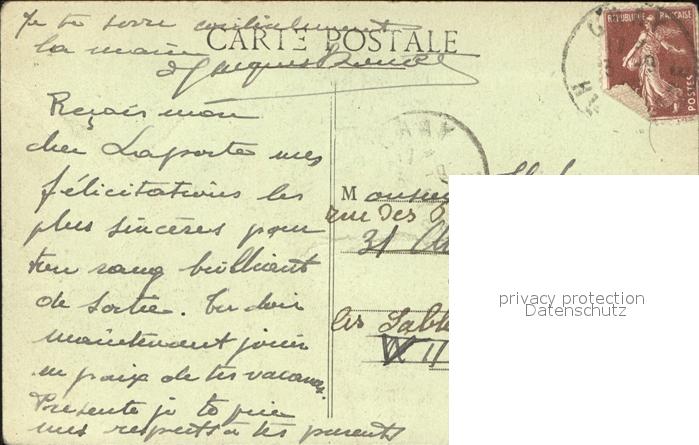 Je te serre cordialement
la main
CARTE POSTALE
RÉPUBLIQUE FRANÇAISE
POSTES
Reçois mon
cher Laporte mes
félicitations les
plus sincères pour
ton rang brillant
de sortie. Tu dois
maintenant jouir
en paix de tes vacances.
Présente je te prie
mes respects à tes parents
Monsieur
rue des
31
les Sables
privacy protection
Datenschutz